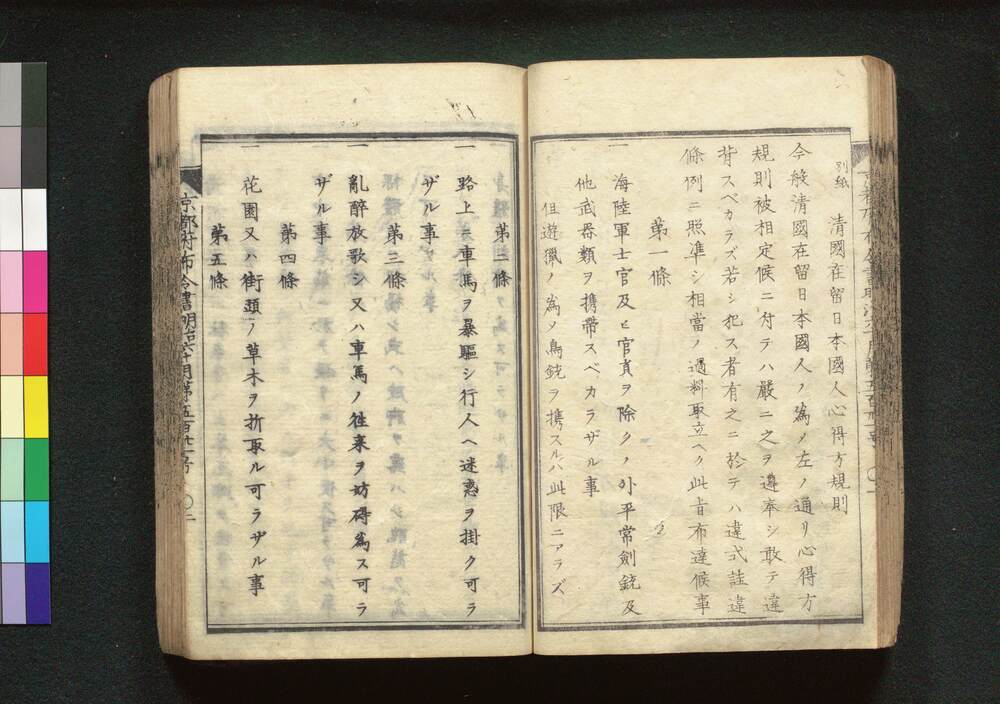 別紙
清國在留日本國人心得方規則
今般清國在留日本國人ノ為メ左ノ通リ心得方
規則被相定候ニ付テハ嚴ニ之ヲ遵奉シ敢テ違
背スベカラズ若シ犯ス者有之ニ於テハ違式詿違
條例ニ照準シ相當ノ過料取立ヘク此旨布達候事
第一條
一 海陸軍士官及ヒ官員ヲ除クノ外平常劍銃及
他武器類ヲ携帶スベカラザル事
但遊獵ノ為メ鳥銃ヲ携スルハ此限ニアラズ
第二條
一 路上ニ車馬ヲ暴驅シ行人ヘ迷惑ヲ掛ク可ラ
ザル事
第三條
一 亂醉放歌シ又ハ車馬ノ徃来ヲ妨碍爲ス可ラ
ザル事
第四條
一 花園又ハ街頭ノ草木ヲ折取ル可ラザル事
第五條
京都府布令書明治六年十月第五百廿一号 〇二